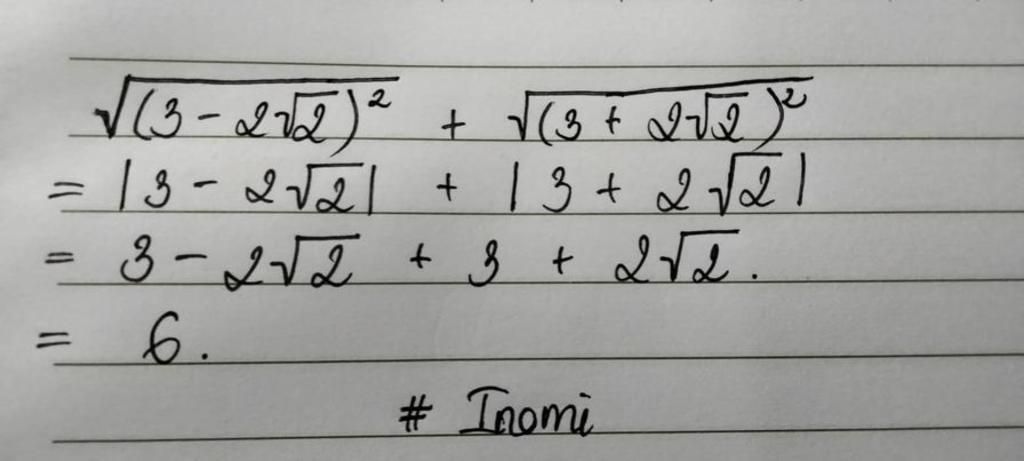 √(3 - 2√2)² + √(3 + 2√2)²
= |3 - 2√2| + |3 + 2√2|
= 3 - 2√2 + 3 + 2√2.
= 6.
# Inomi